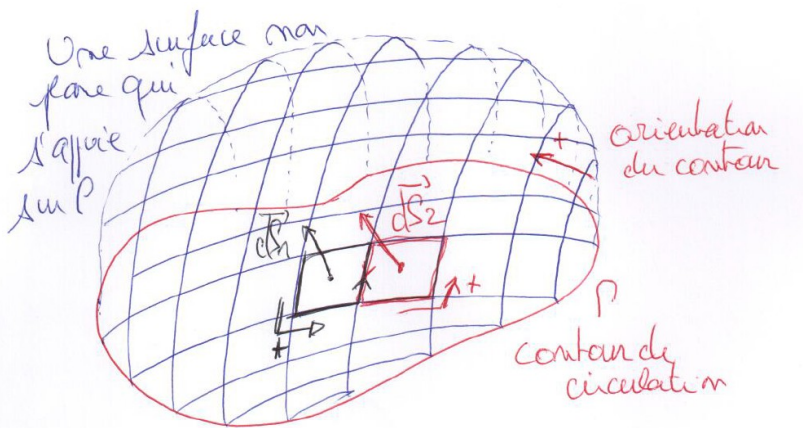 Une surface non
plane qui
s'appuie
sur Γ
+
orientation
du contour
dS₁
dS₂
+
+
Γ
contour de
circulation